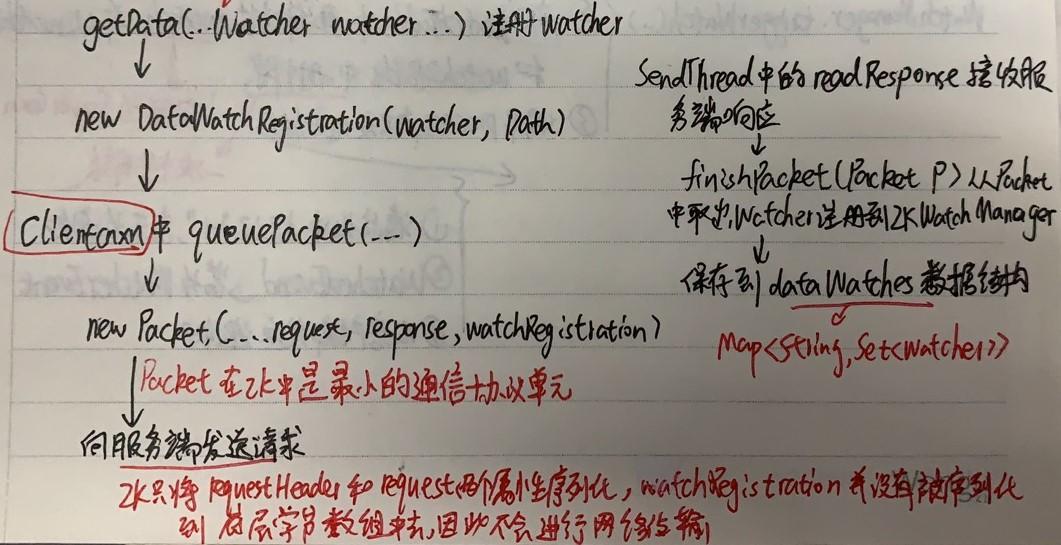 getData(...Watcher watcher...) 注册watcher
new DataWatchRegistration(watcher, Path)
Clientcnxn中 queuePacket(---)
new Packet(.....request, response, watchRegistration)
Packet在ZK中是最小的通信协议单元
向服务端发送请求
ZK只将requestHeader和request两个属性序列化, watchRegistration并没有被序列化
到底层字节数组中去,因此不会进行网络传输
SendThread中的readResponse接收服
务端响应
finishPacket(Packet P)从Packet
中取出Watcher注册到ZKWatchManager
保存到dataWatches数据结构
Map<String, Set<Watcher>>